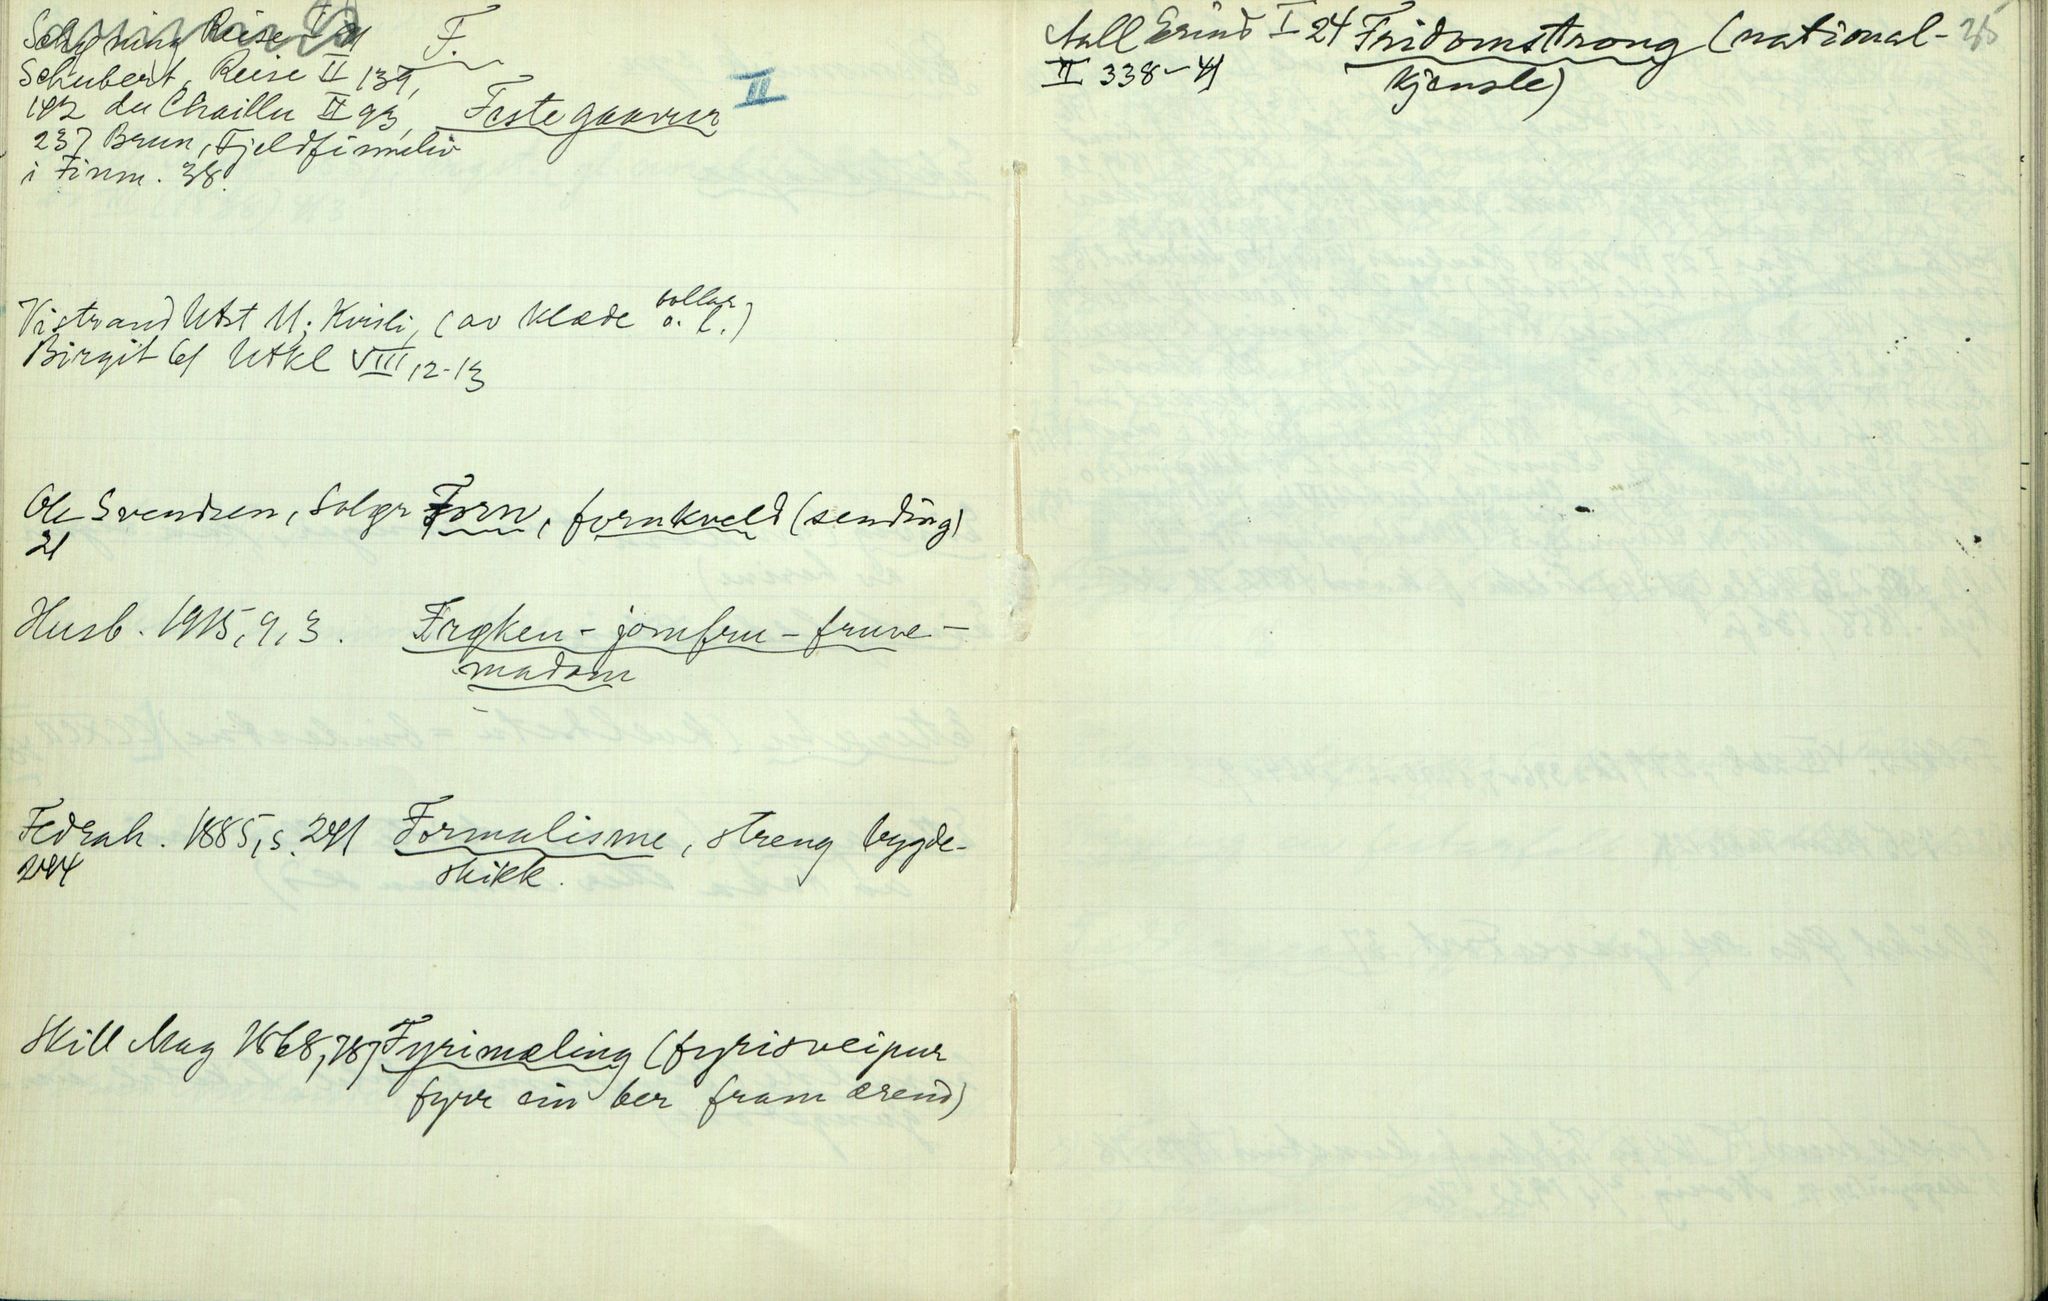 Schøning Reise I 21 F.
Schubert, Reise II 139,
142 du Chaillu II 93, Festegaavur II
237 Brun, Fjeldfinneliv
i Finm. 38.
Vistrand UAst 11; Kvisli, (av klæde bollar o. l.)
Birgit 61 UAkl VIII, 12-13
Ole Svendsen, Solgr Forn, fornkveld (sending)
21
Husb. 1915, 9, 3. Frøken - jomfru - fruve -
madam
Fedrah. 1885, s. 241 Formalisme, streng bygde-
244 skikk.
Skill Mag 1868, 787 Fyrimæling (fyrisveipur
fyrr ein ber fram ærend)
Aall Erind I 24 Fridomstrong (national- 25
II 338-41 kjensle)